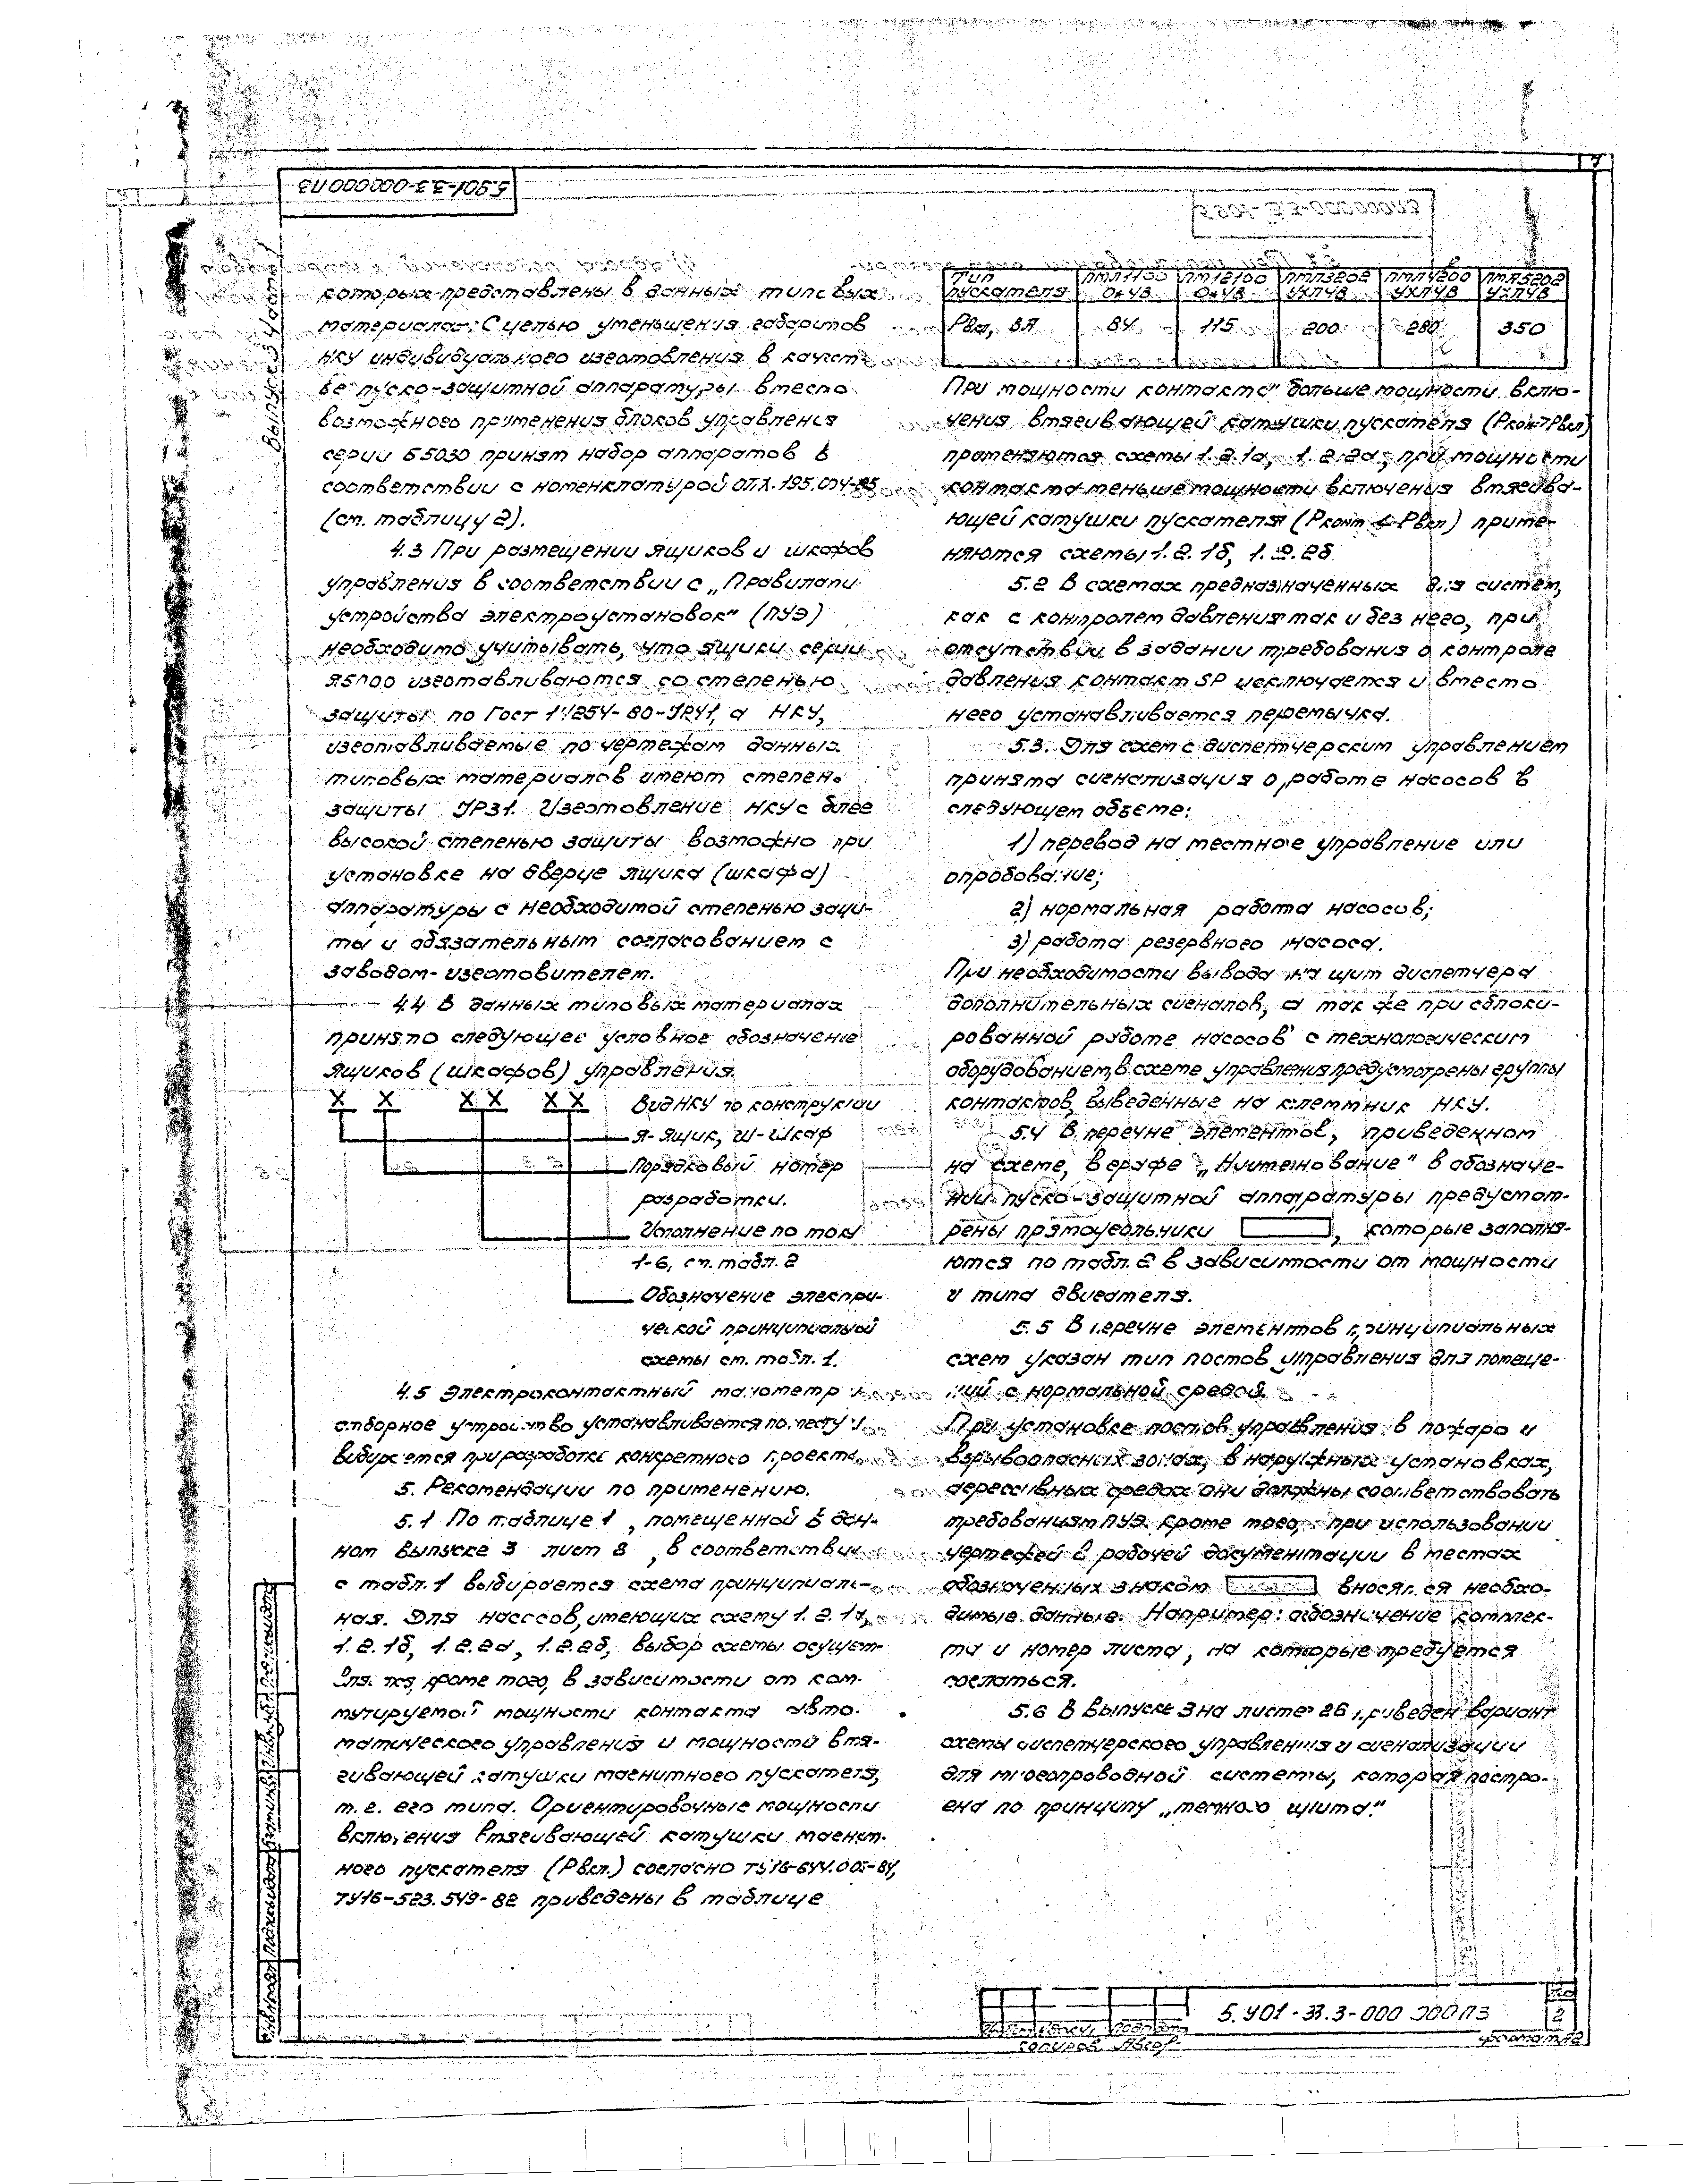 7
5.901-3.3-000000ПЗ
Выпуск 3
которых представлены в данных типовых
материалах. С целью уменьшения габаритов
НКУ индивидуального изготовления в качест-
ве пуско-защитной аппаратуры вместо
возможного применения блоков управления
серии Б5030 принят набор аппаратов в
соответствии с номенклатурой ОТХ.195.014-85
(см. таблицу 2).
4.3 При размещении ящиков и шкафов
управления в соответствии с „Правилами
устройства электроустановок" (ПУЭ)
необходимо учитывать, что ящики серии
Я5000 изготавливаются со степенью
защиты по Гост 14254-80-IP41, а НКУ,
изготавливаемые по чертежам данных
типовых материалов имеют степень
защиты IP31. Изготовление НКУ с более
высокой степенью защиты возможно при
установке на дверце ящика (шкафа)
аппаратуры с необходимой степенью защи-
ты и обязательным согласованием с
заводом-изготовителем.
4.4 В данных типовых материалах
принято следующее условное обозначение
ящиков (шкафов) управления.
X X XX XX Вид НКУ по конструкции
Я-ящик, Ш-шкаф
Порядковый номер
разработки.
Исполнение по току
1-6, см. табл. 2
Обозначение электри-
ческой принципиальной
схемы см. табл. 1.
4.5 Электроконтактный манометр и
отборное устройство устанавливается по месту и
выбирается при разработке конкретного проекта.
5. Рекомендации по применению.
5.1 По таблице 1, помещенной в дан-
ном выпуске 3 лист 8, в соответствии
с табл. 1 выбирается схема принципиаль-
ная. Для насосов, имеющих схему 1.2.1а,
1.2.1б, 1.2.2а, 1.2.2б, выбор схемы осущест-
вляется, кроме того, в зависимости от ком-
мутируемой мощности контакта авто-
матического управления и мощности втя-
гивающей катушки магнитного пускателя,
т.е. его типа. Ориентировочные мощности
включения втягивающей катушки магнит-
ного пускателя (Рвкл.) согласно ТУ16-644.001-84,
ТУ16-523.549-82 приведены в таблице
Тип пускателя | ПМЛ1100 О*4В | ПМ12100 О*4В | ПМЛ3202 УХЛ4В | ПМЛ4200 УХЛ4В | ПМЛ5202 УХЛ4В
Рвкл, ВА | 84 | 115 | 200 | 280 | 350
При мощности контакта больше мощности вклю-
чения втягивающей катушки пускателя (Рконт>Рвкл)
применяются схемы 1.2.1а, 1.2.2а; при мощности
контакта меньше мощности включения втягива-
ющей катушки пускателя (Рконт < Рвкл) приме-
няются схемы 1.2.1б, 1.2.2б
5.2 В схемах предназначенных для систем,
как с контролем давления так и без него, при
отсутствии в задании требования о контроле
давления контакт SP исключается и вместо
него устанавливается перемычка.
5.3. Для схем с диспетчерским управлением
принята сигнализация о работе насосов в
следующем объеме:
1) перевод на местное управление или
опробование;
2) нормальная работа насосов;
3) работа резервного насоса.
При необходимости вывода на щит диспетчера
дополнительных сигналов, а так же при сблоки-
рованной работе насосов с технологическим
оборудованием, в схеме управления предусмотрены группы
контактов, выведенные на клеммник НКУ.
5.4 В перечне элементов, приведенном
на схеме, в графе „Наименование" в обозначе-
нии пуско-защитной аппаратуры предусмот-
рены прямоугольники , которые заполня-
ются по табл. 2 в зависимости от мощности
и типа двигателя.
5.5 В перечне элементов принципиальных
схем указан тип постов управления для помеще-
ний с нормальной средой.
При установке постов управления в пожаро и
взрывоопасных зонах, в наружных установках,
агрессивных средах они должны соответствовать
требованиям ПУЭ. Кроме того, при использовании
чертежей в рабочей документации в местах
обозначенных знаком вносятся необхо-
димые данные. Например: обозначение комплек-
та и номер листа, на которые требуется
сослаться.
5.6 В Выпуске 3 на листе 26 приведен вариант
схемы диспетчерского управления и сигнализации
для многопроводной системы, которая постро-
ена по принципу „темного щита."
5.901-3.3-000000ПЗ
2
Копиров.
Формат А2